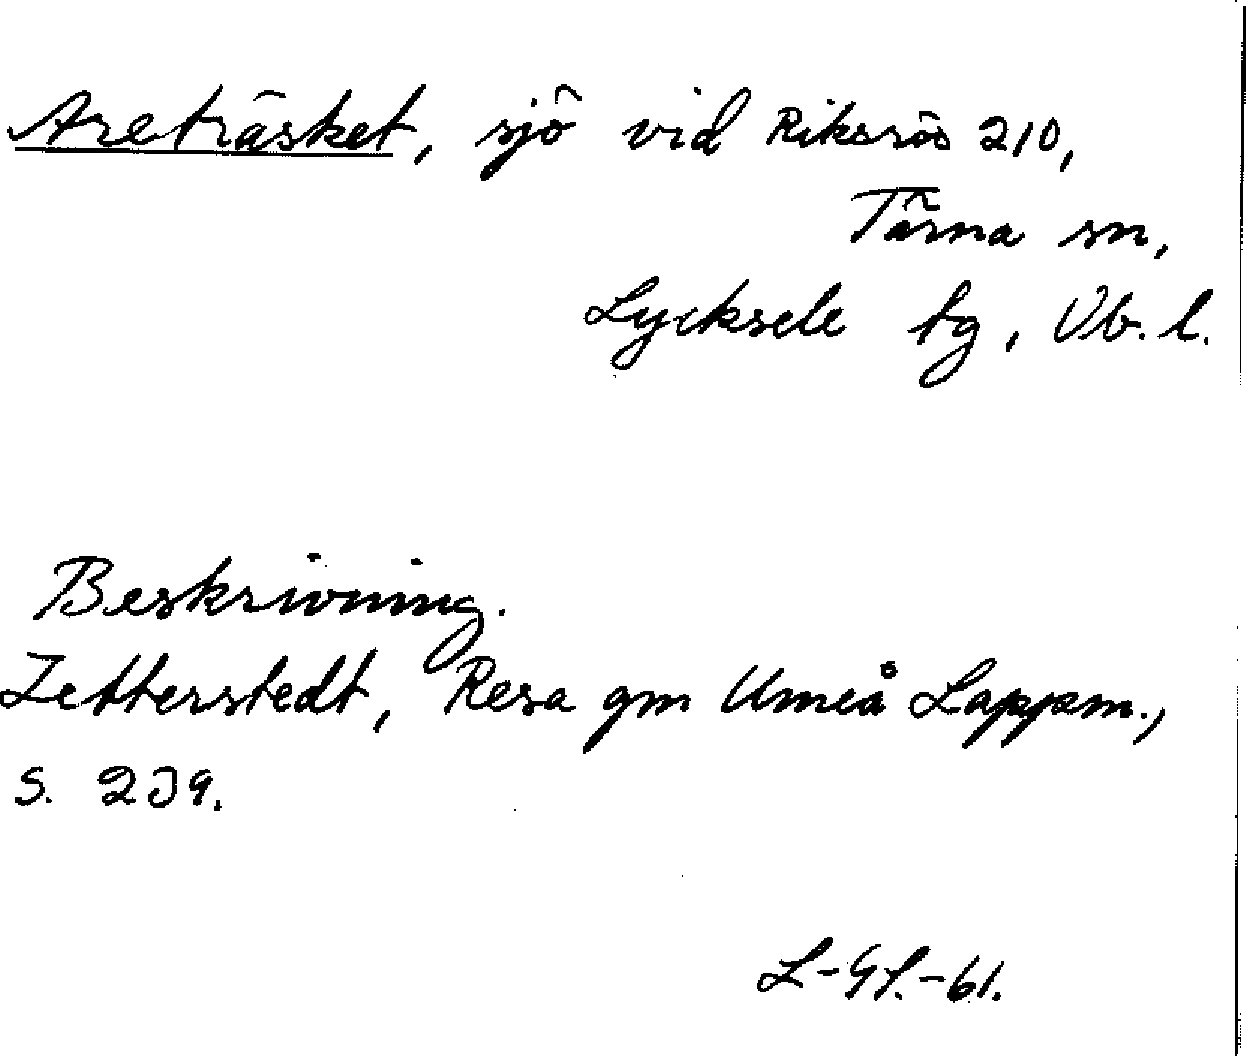 Areträsket, sjö vid Riksrös 210,
Tärna sn,
Lycksele tg, Vb. l.
Beskrivning.
Zetterstedt, Resa gm Umeå Lappm.,
S. 239.